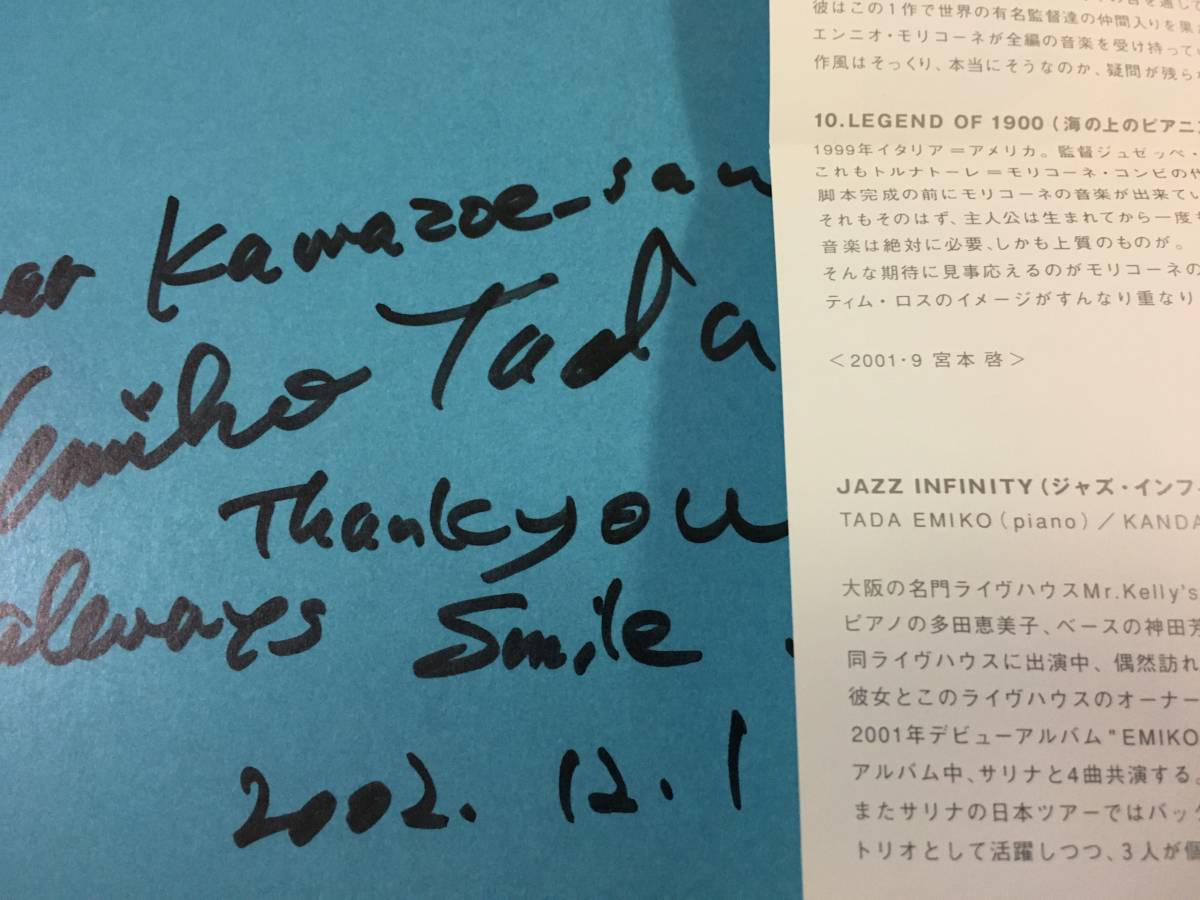 ear Kamazoe-san
Emiko Tada
Thank you
always Smile.
2002.12.1
彼はこの1作で世界の有名監督達の仲間入りを果
エンニオ・モリコーネが全編の音楽を受け持って
作風はそっくり、本当にそうなのか、疑問が残ら
10.LEGEND OF 1900(海の上のピアニ
1999年イタリア=アメリカ。監督ジュゼッペ・
これもトルナトーレ=モリコーネ・コンビの
脚本完成の前にモリコーネの音楽が出来てい
それもそのはず、主人公は生まれてから一度
音楽は絶対に必要、しかも上質のものが。
そんな期待に見事応えるのがモリコーネの
ティム・ロスのイメージがすんなり重なり
<2001・9 宮本 啓>
JAZZ INFINITY(ジャズ・インフィ
TADA EMIKO(piano)/KANDA
大阪の名門ライヴハウスMr.Kelly's
ピアノの多田恵美子、ベースの神田芳
同ライヴハウスに出演中、偶然訪れ
彼女とこのライヴハウスのオーナー
2001年デビューアルバム"EMIKO
アルバム中、サリナと4曲共演する。
またサリナの日本ツアーではバック
トリオとして活躍しつつ、3人が個